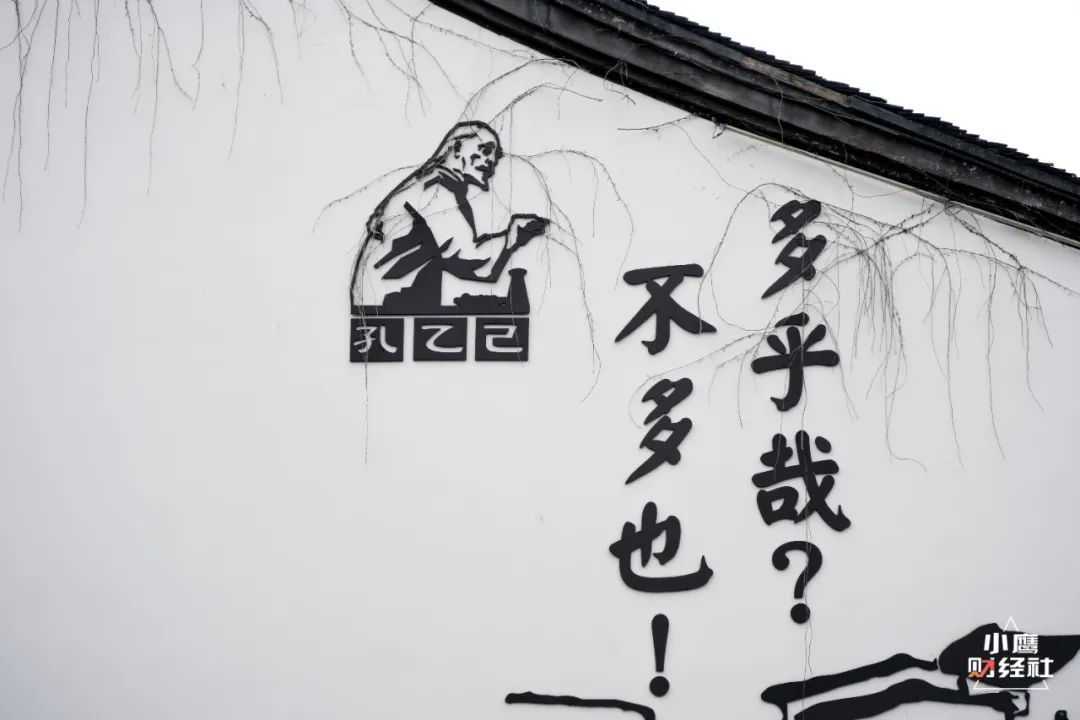 孔乙己
多乎哉？
不多也！
小鹰
财经社